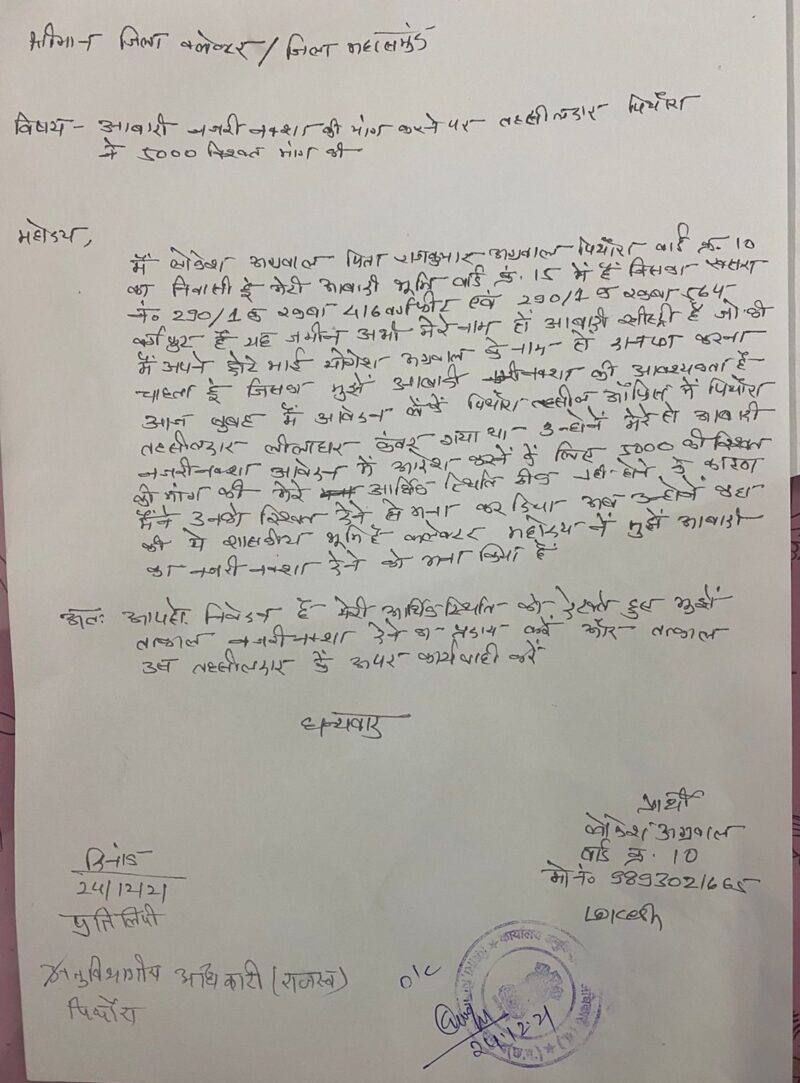 श्रीमान जिला कलेक्टर / जिला महासमुंद
विषय - आबादी नजरी नक्शा की मांग करने पर तहसीलदार पिथौरा
ने 5000 रिश्वत मांग की
महोदय,
में लोकेश अग्रवाल पिता राजकुमार अग्रवाल पिथौरा वार्ड क्र. 10
का निवासी हूं मेरी आबादी भूमि वार्ड क्रं. 15 में हैं जिसका खसरा
नं० 290/1 क रकबा 416 वर्गफीट एवं 290/1 क रकबा 564
वर्गफुट हैं यह जमीन अभी मेरे नाम हैं जो की
में अपने छोटे भाई योगेश अग्रवाल के नाम से दानपत्र करना
चाहता हूं जिसका मुझें आबादी नजरीनक्शा की आवश्यकता हैं
आज सुबह में आवेदन लेकें पिथौरा तहसील ऑफिस में पिथौरा
तहसीलदार लीलाधर कंवर गया था - उन्होनें मेरे से आबादी
नजरीनक्शा आवेदन में आदेश करनें कें लिए 5000 की रिश्वत
की मांग की मेरे आर्थिक स्थिति ठीक नही होने के कारण
मैंने उनको रिश्वत देने से मना कर दिया अब उन्होनें कहा
की ये शासकीय भूमि हैं कलेक्टर महोदय नें मुझें आबादी
का नजरीनक्शा देने को मना किया हैं
अतः आपसे निवेदन हैं मेरी आर्थिक स्थिति को देखतें हुए मुझें
तत्काल नजरीनक्शा देने का करें और तत्काल
उस तहसीलदार कें ऊपर कार्यवाही करें
धन्यवाद
प्रार्थी
लोकेश अग्रवाल
वार्ड क्र. 10
मो नं० 9893021665
Lokesh
दिनांक
24/12/21
प्रतिलिपी
अनुविभागीय अधिकारी (राजस्व)
पिथौरा
o/c
24.12.21
कार्यालय